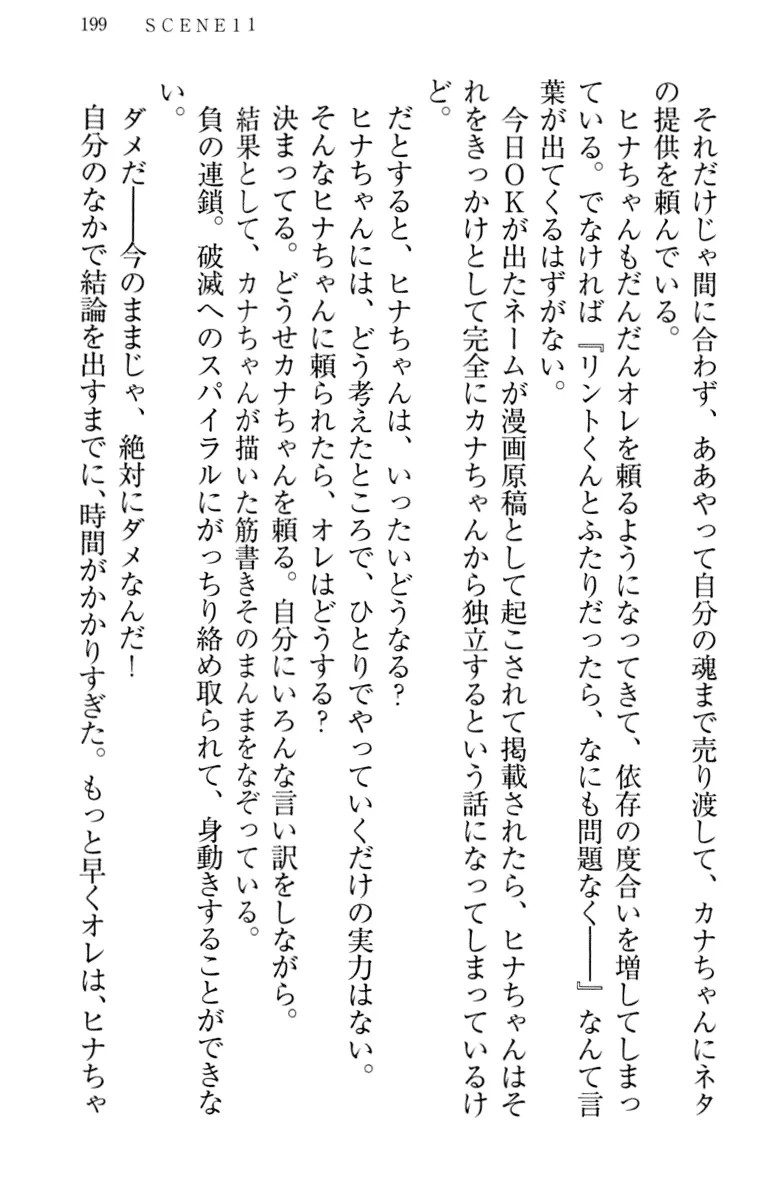 199　SCENE11
　それだけじゃ間に合わず、ああやって自分の魂まで売り渡して、カナちゃんにネタ
の提供を頼んでいる。
　ヒナちゃんもだんだんオレを頼るようになってきて、依存の度合いを増してしまっ
ている。でなければ『リントくんとふたりだったら、なにも問題なく――』なんて言
葉が出てくるはずがない。
　今日OKが出たネームが漫画原稿として起こされて掲載されたら、ヒナちゃんはそ
れをきっかけとして完全にカナちゃんから独立するという話になってしまっているけ
ど。
　だとすると、ヒナちゃんは、いったいどうなる？
　ヒナちゃんには、どう考えたところで、ひとりでやっていくだけの実力はない。
　そんなヒナちゃんに頼られたら、オレはどうする？
　決まってる。どうせカナちゃんを頼る。自分にいろんな言い訳をしながら。
　結果として、カナちゃんが描いた筋書きそのまんまをなぞっている。
　負の連鎖。破滅へのスパイラルにがっちり絡め取られて、身動きすることができな
い。
　ダメだ――今のままじゃ、絶対にダメなんだ！
　自分のなかで結論を出すまでに、時間がかかりすぎた。もっと早くオレは、ヒナちゃ